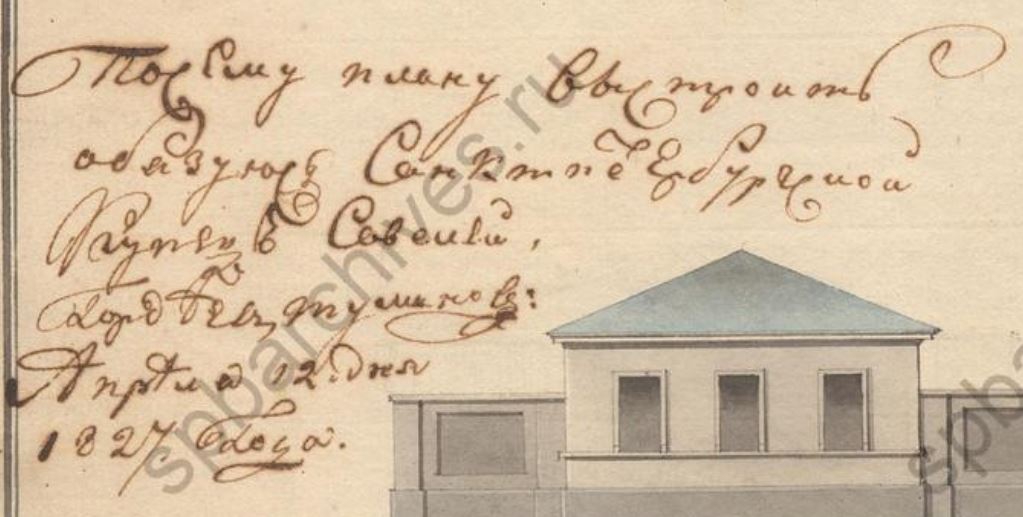 По сему плану выстроить
обязуюсь Санктпетербургской
Купецъ Савелей,
Туминовъ:
Апреля 12. дня
1827 Года.
spbarchives.ru